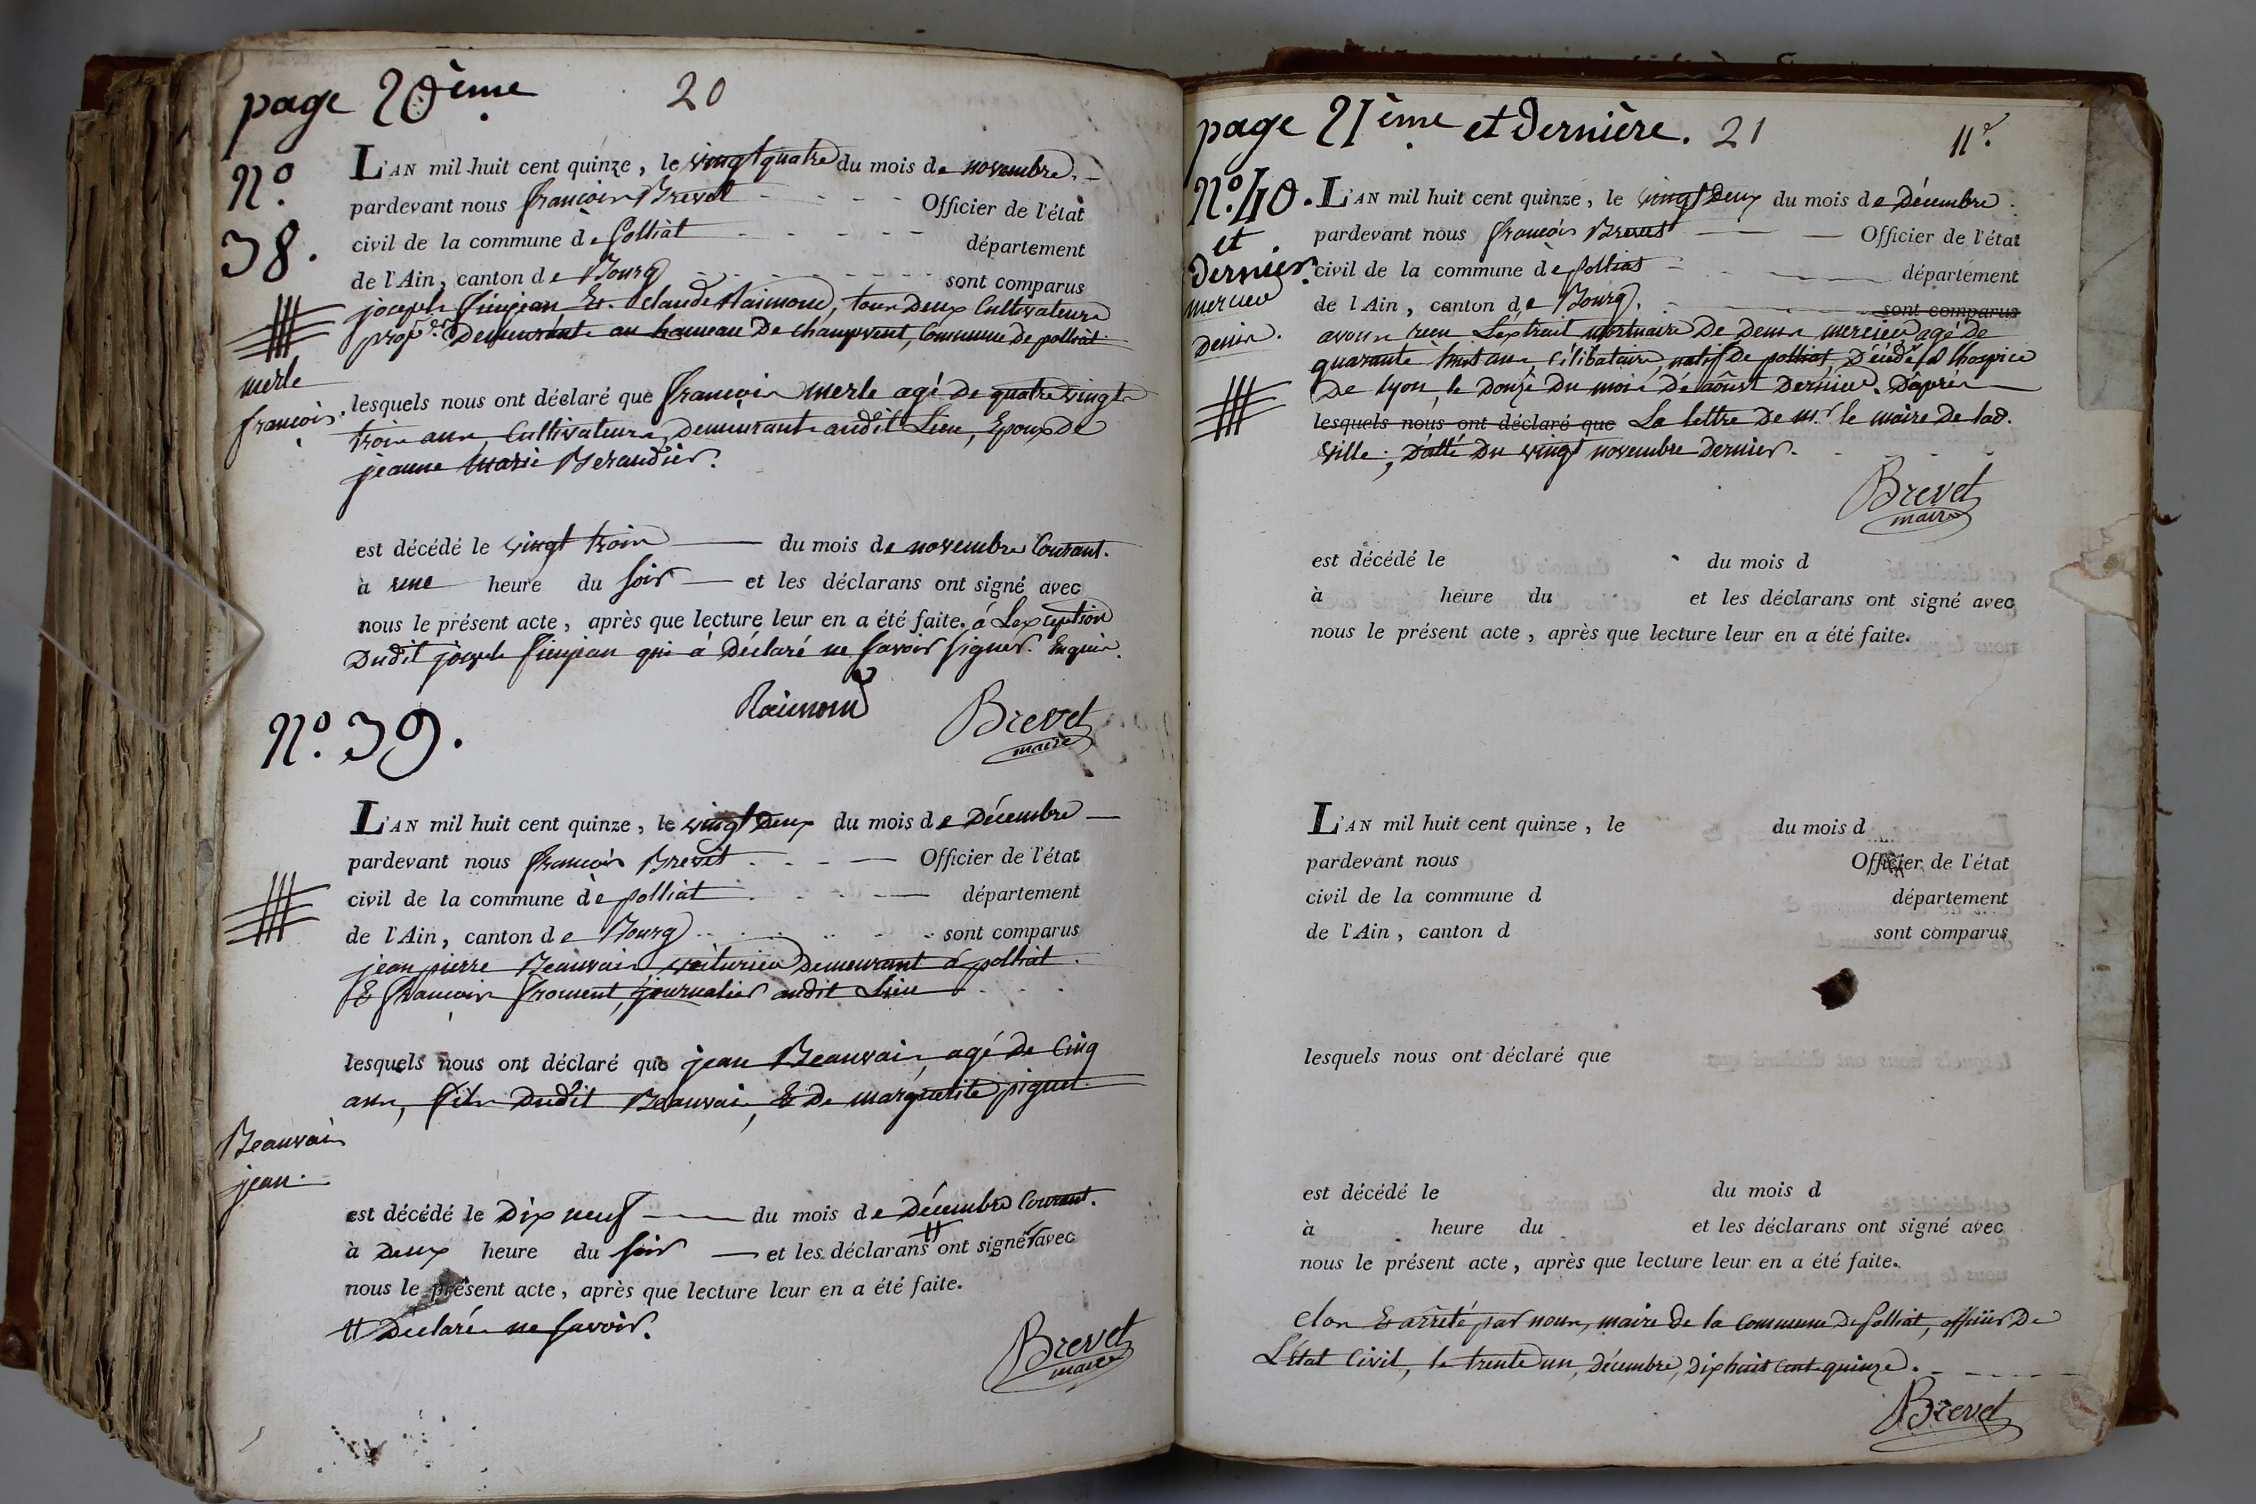 page 20ème 20
N.º
38.
L'AN mil huit cent quinze, le vingt quatre du mois de novembre.
pardevant nous françois Brevet Officier de l'état
civil de la commune de Polliat département
de l'Ain, canton de Bourg sont comparus
joseph et Claude Raimond, tous deux Cultivateurs
demeurant au hameau de Champvent, Commune de polliat.
merle
françois.
lesquels nous ont déclaré que françois merle agé de quatre vingt
trois ans, Cultivateur, demeurant audit Lieu, Epoux de
jeanne marie Beraudier.
est décédé le vingt trois du mois de novembre Courant.
à une heure du soir et les déclarans ont signé avec
nous le présent acte, après que lecture leur en a été faite. à Lexception
dudit joseph qui a déclaré ne savoir signer. Enquis.
Raimond Brevet
maire
N.º 39.
L'AN mil huit cent quinze, le vingt deux du mois de décembre
pardevant nous françois Brevet Officier de l'état
civil de la commune de polliat département
de l'Ain, canton de Bourg sont comparus
jean pierre Beauvais voiturier demeurant à polliat.
& françois froment, journalier audit Lieu
lesquels nous ont déclaré que jean Beauvais, agé de Cinq
ans, fils dudit Beauvais, & de marguerite piguet.
Beauvais
jean.
est décédé le dix neuf du mois de décembre Courant.
à deux heure du soir et les déclarans ont signé avec
nous le présent acte, après que lecture leur en a été faite.
tt déclaré ne savoir.
Brevet
maire
page 21ème et dernière. 21
N.º 40.
et
dernier.
mercier
denis.
L'AN mil huit cent quinze, le vingt deux du mois de décembre.
pardevant nous françois Brevet Officier de l'état
civil de la commune de polliat département
de l'Ain, canton de Bourg. sont comparus
avons reçu Lextrait mortuaire de denis mercier agé de
quarante huit ans, célibataire, natif de polliat, décédé à l'hospice
de lyon, le douze du mois d'aoust dernier. d'après
lesquels nous ont déclaré que La lettre de m.r le maire de lad.
ville, datté du vingt novembre dernier.
Brevet
maire
est décédé le du mois d
à heure du et les déclarans ont signé avec
nous le présent acte, après que lecture leur en a été faite.
L'AN mil huit cent quinze, le du mois d
pardevant nous Officier de l'état
civil de la commune d département
de l'Ain, canton d sont comparus
lesquels nous ont déclaré que
est décédé le du mois d
à heure du et les déclarans ont signé avec
nous le présent acte, après que lecture leur en a été faite.
clos & arrêté par nous, maire de la commune de Polliat, officier de
L'état Civil, le trente un, décembre, dix huit cent quinze.
Brevet